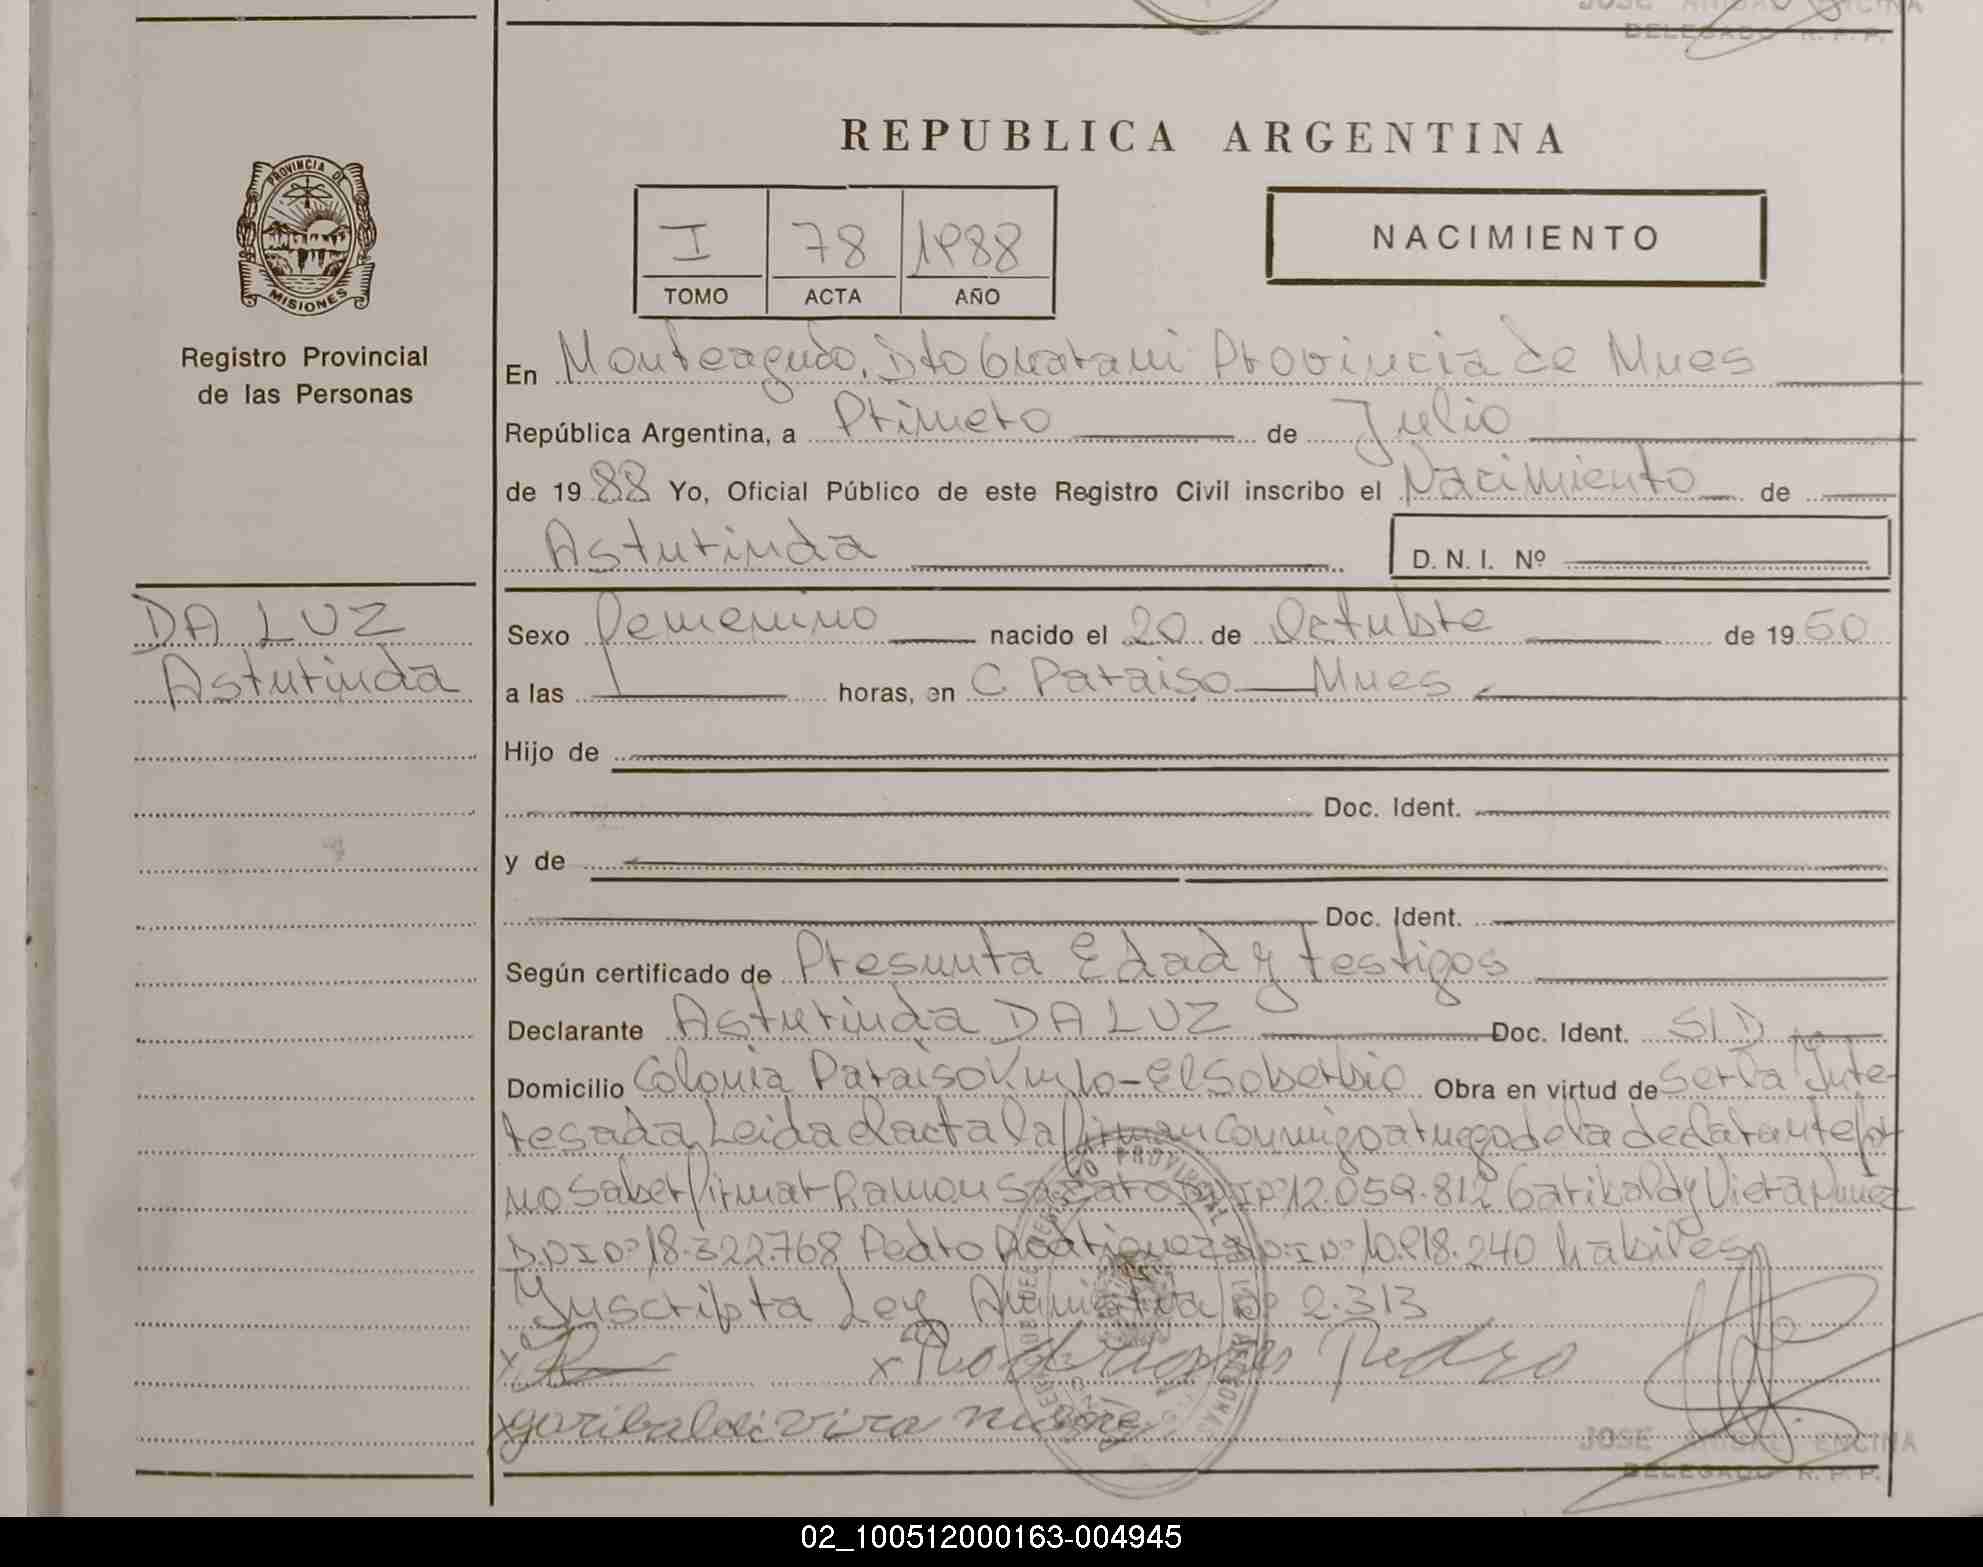 JOSE ANIBAL ENCINA
DELEGADO R. P. P.
REPUBLICA ARGENTINA
PROVINCIA DE
MISIONES
I 78 1988
TOMO ACTA AÑO
NACIMIENTO
Registro Provincial
de las Personas
En Monteagudo, Dto Guarani Provincia de Mnes
República Argentina, a Primero de Julio
de 19 88 Yo, Oficial Público de este Registro Civil inscribo el Nacimiento de
Asturinda D. N. I. Nº
DA LUZ
Asturinda
Sexo Femenino nacido el 20 de Octubre de 19 60
a las horas, en C. Paraiso Mnes
Hijo de
Doc. Ident.
y de
Doc. Ident.
Según certificado de Presunta Edad y testigos
Declarante Asturinda DA LUZ Doc. Ident. S/D
Domicilio Colonia Paraiso Km 10-El Soberbio Obra en virtud de Ser la Inte-
resada Leida el acta la firman conmigo a ruego de la declarante por
no saber firmar Ramon D.N.I Nº 12.059.812 Garibaldy Viera Nunez
D.N.I Nº 18.322.768 Pedro Rodriguez D.N.I Nº 10.918.240 habiles
Inscripta Ley Amnistia Nº 2.313
x x Rodrigues Pedro
x garibaldi vira nunez
JOSE ANIBAL ENCINA
DELEGADO R. P. P.
02_100512000163-004945